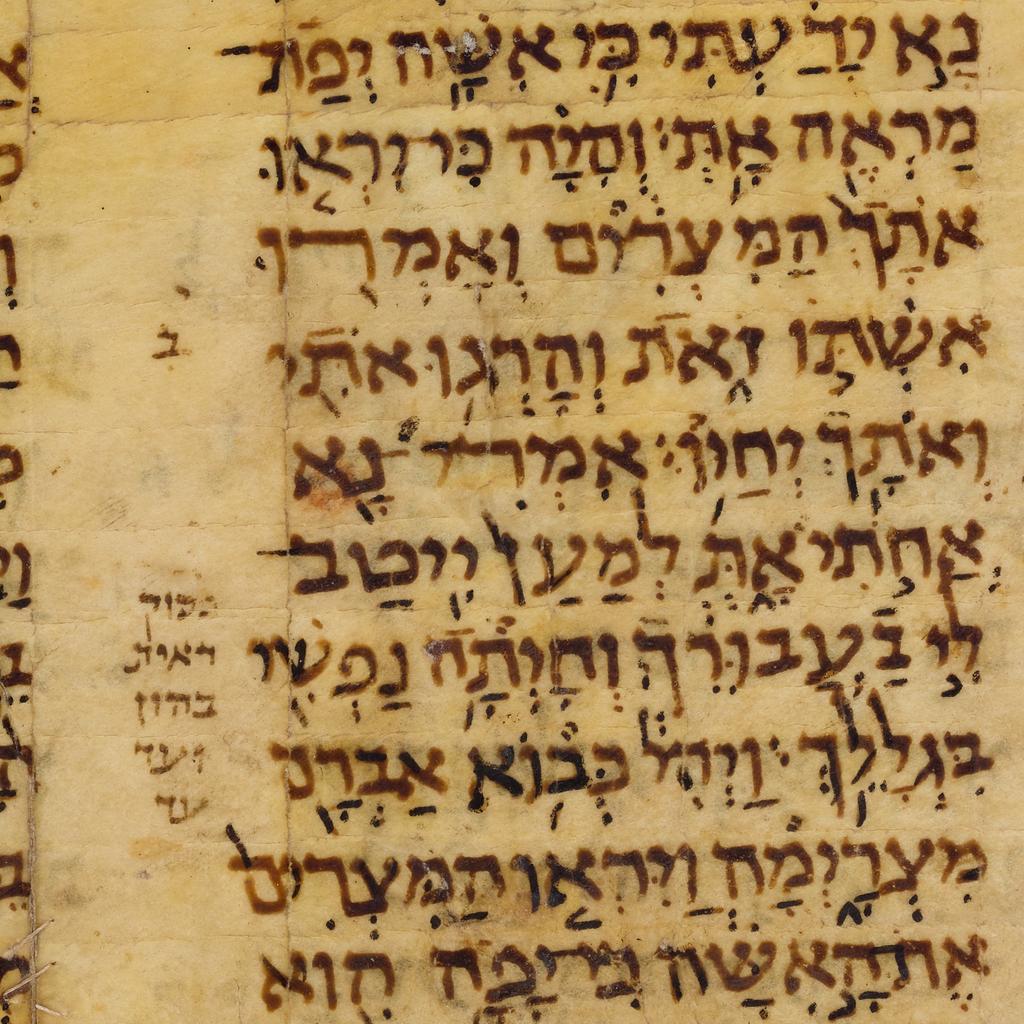 נָא יָדַעְתִּי כִּי אִשָּׁה יְפַת
מַרְאֶה אָתְּ׃ וְהָיָה כִּי יִרְאוּ
אֹתָךְ הַמִּצְרִים וְאָמְרוּ
אִשְׁתּוֹ זֹאת וְהָרְגוּ אֹתִי
וְאֹתָךְ יְחַיּוּ׃ אִמְרִי נָא
אֲחֹתִי אָתְּ לְמַעַן יִיטַב
לִי בַּעֲבוּרֵךְ וְחָיְתָה נַפְשִׁי
בִּגְלָלֵךְ׃ וַיְהִי כְּבוֹא אַבְרָם
מִצְרָיְמָה וַיִּרְאוּ הַמִּצְרִים
אֶת הָאִשָּׁה כִּי יָפָה הִוא
ב